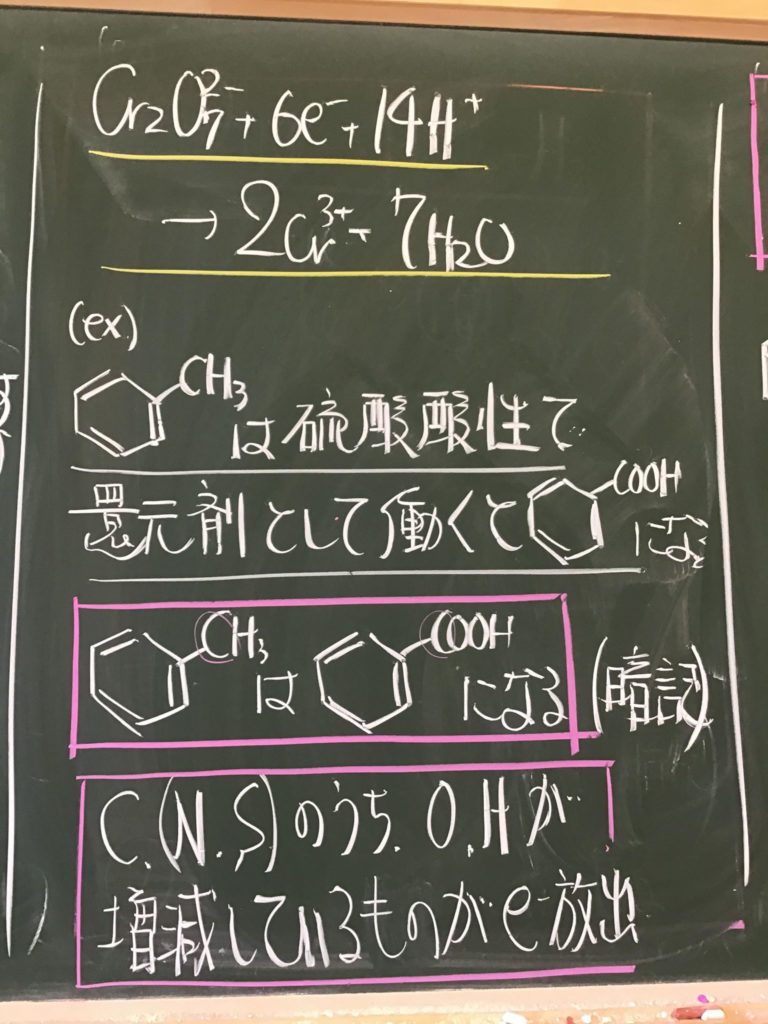 Cr₂O₇²⁻ + 6e⁻ + 14H⁺
→ 2Cr³⁺ + 7H₂O
(ex)
CH₃ は 硫酸酸性で
還元剤として働くと COOH になる
CH₃ は COOH になる (暗記)
C.(N.S)のうち.O.Hが
増減しているものがe⁻放出